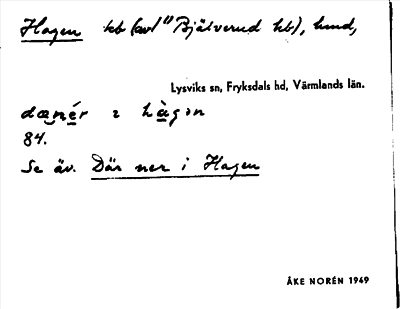 Hagen kb (avl Bjälverud hb), hmd,
Lysviks sn, Fryksdals hd, Värmlands län.
dænér i hàgən
84.
Se äv. Där ner i Hagen
ÅKE NORÉN 1949